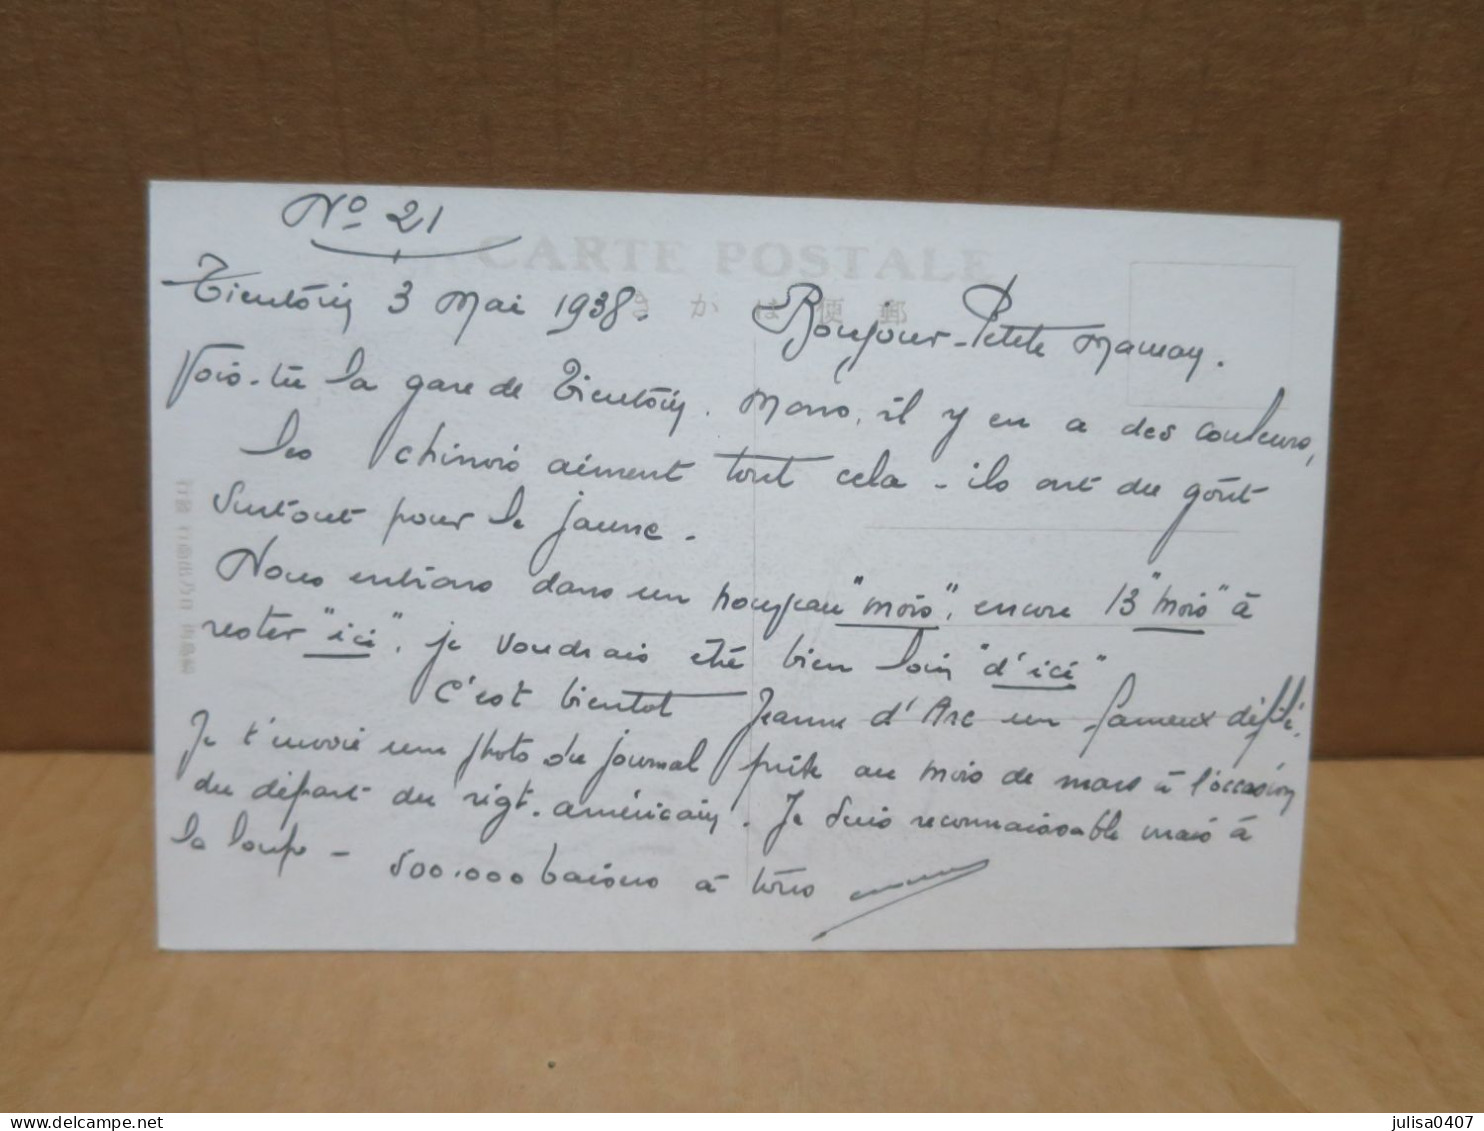 N° 21
CARTE POSTALE
きがは便郵
Tientsin 3 Mai 1938. Bonjour-Petite Maman.
Vois-tu la gare de Tientsin. Mans, il y en a des couleurs,
les chinois aiment tout cela - ils ont du goût
surtout pour le jaune.
Nous entrons dans un nouveau "mois", encore 13 "mois" à
rester "ici", je voudrais être bien loin "d'ici"
C'est bientot Jeanne d'Arc un fameux défilé.
Je t'envoie une photo du journal prise au mois de mars à l'occasion
du départ du rigt. américain. Je suis reconnaissable mais à
la loupe - 500.000 baisers à tous
julisa0407